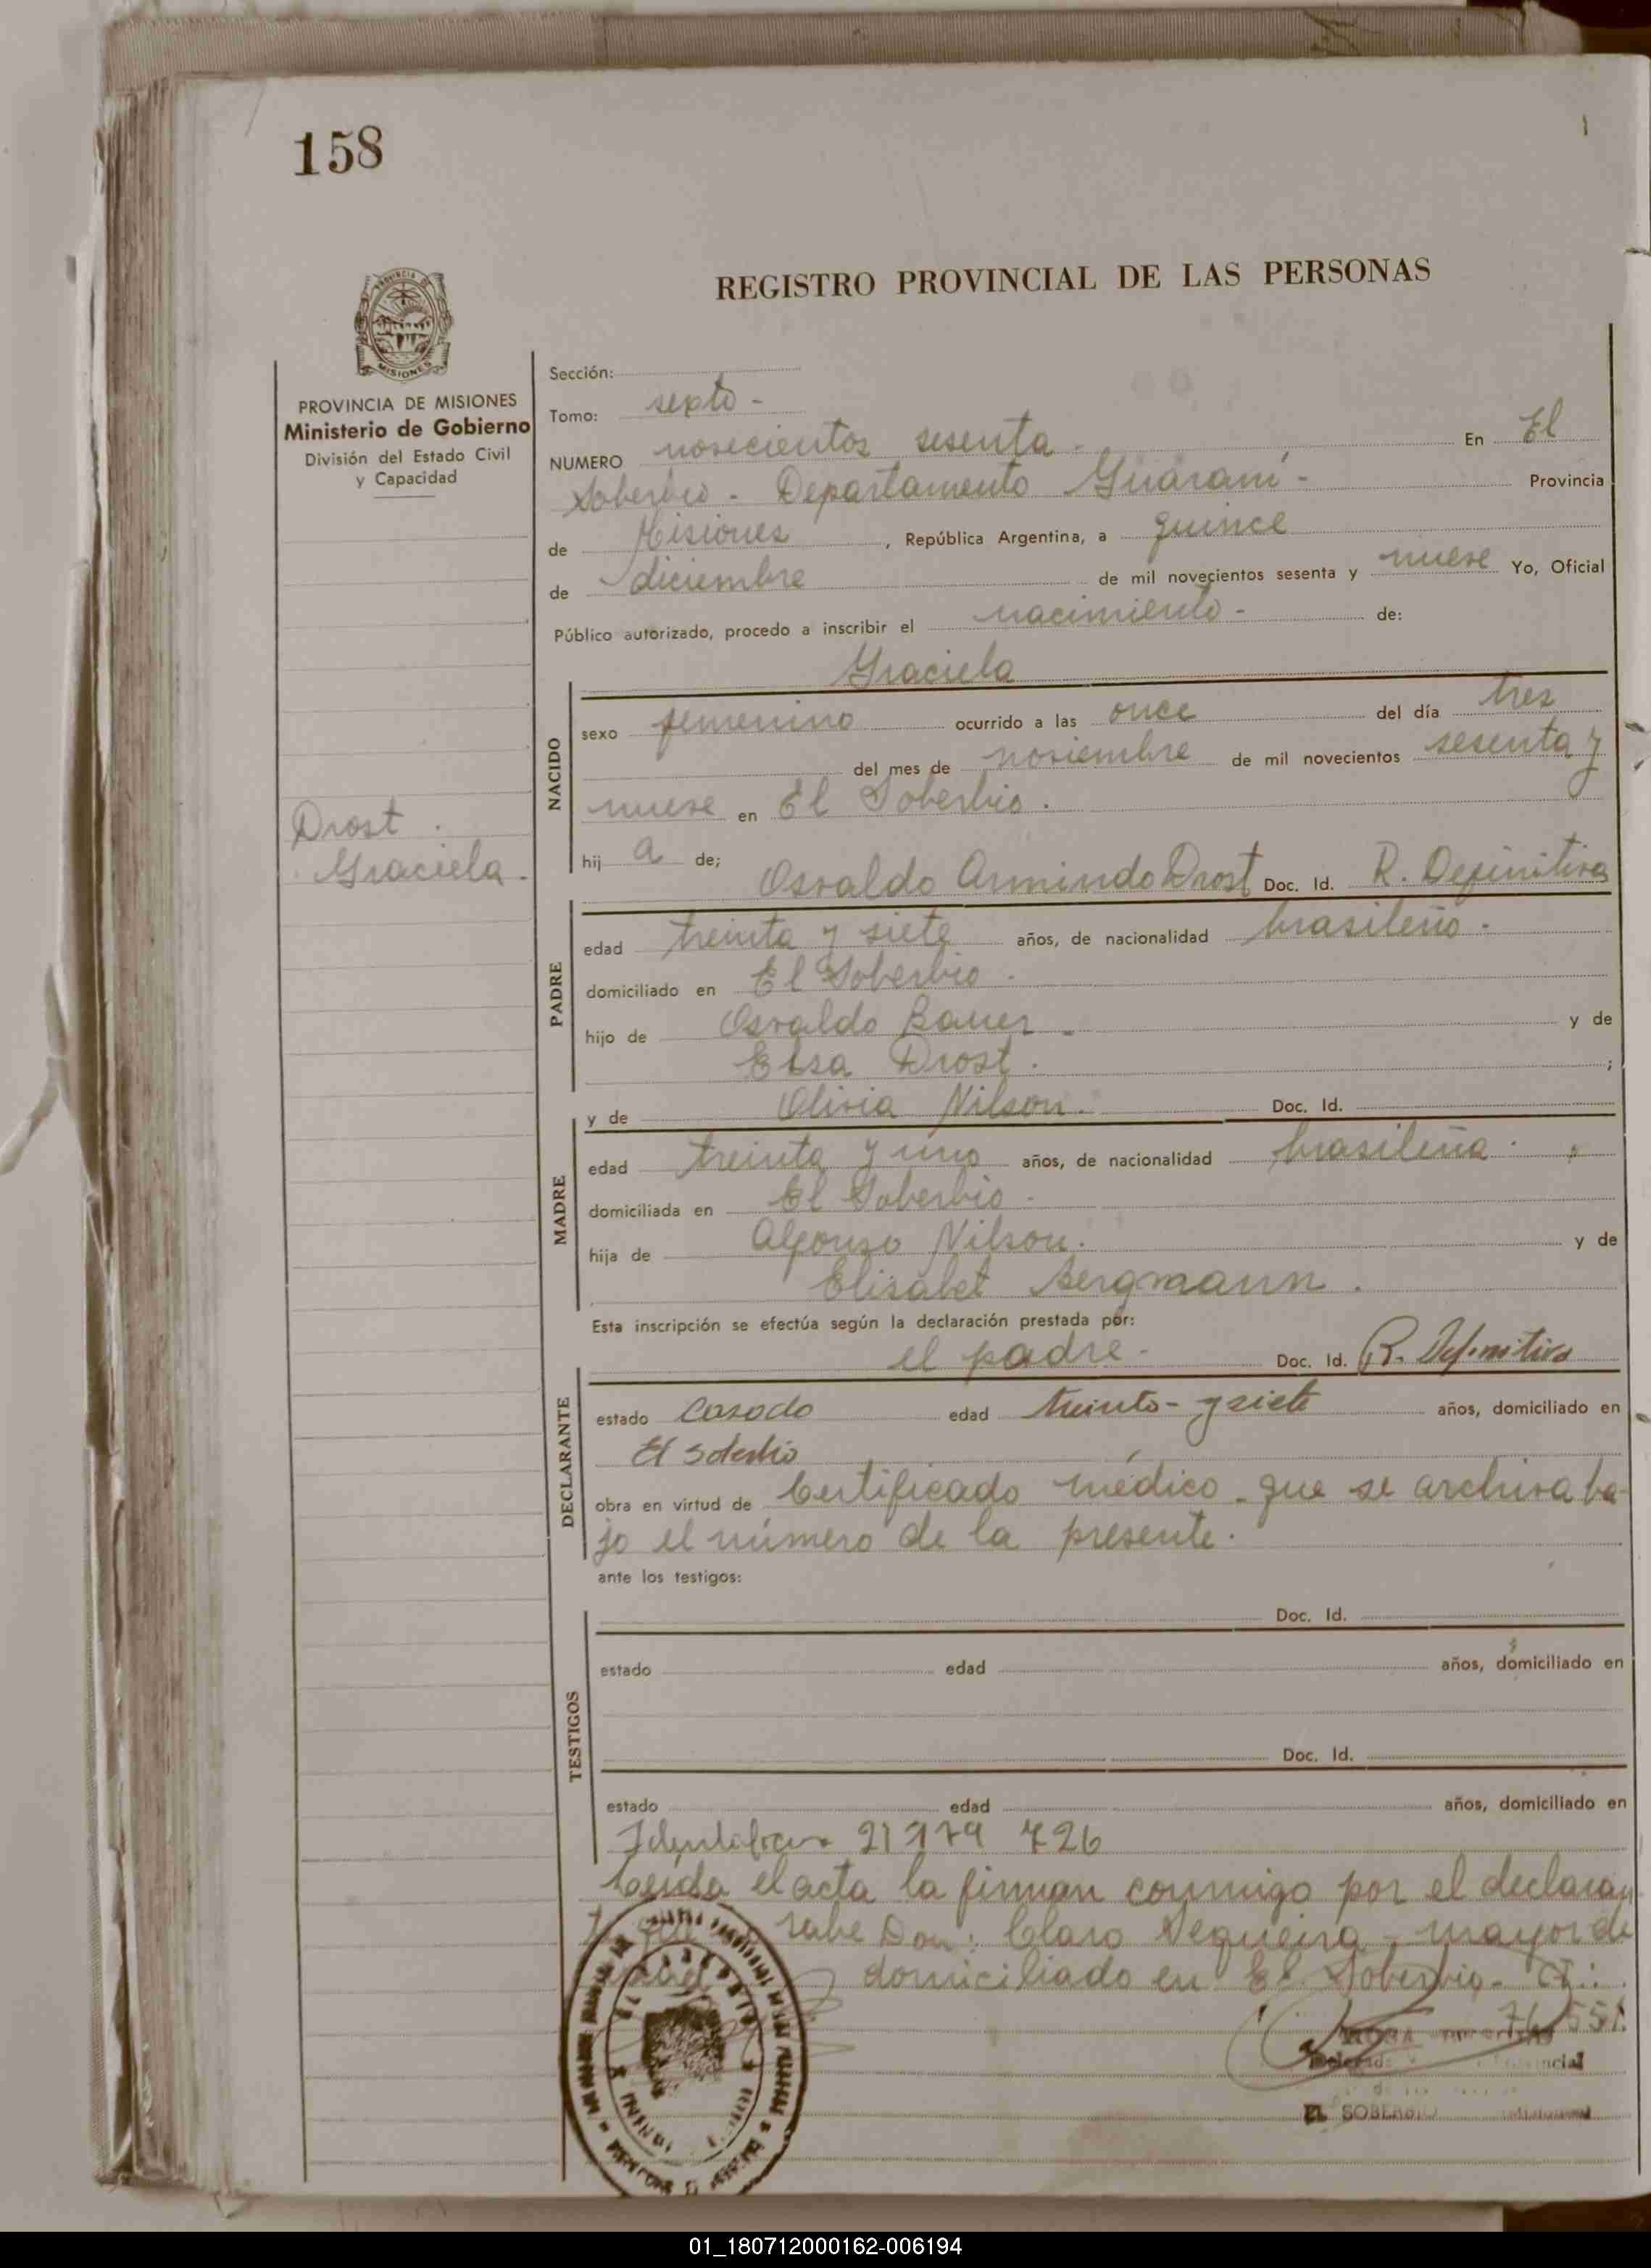 158
REGISTRO PROVINCIAL DE LAS PERSONAS
PROVINCIA DE MISIONES
Ministerio de Gobierno
División del Estado Civil
y Capacidad
Drost.
Graciela.
Sección:
Tomo: sexto -
NUMERO novecientos sesenta - En El
Soberbio - Departamento Guaraní - Provincia
de Misiones, República Argentina, a quince
de diciembre de mil novecientos sesenta y nueve Yo, Oficial
Público autorizado, procedo a inscribir el nacimiento - de:
Graciela
NACIDO
sexo femenino ocurrido a las once del día tres
del mes de noviembre de mil novecientos sesenta y
nueve en El Soberbio.
hij a de;
Osvaldo Armindo Drost Doc. Id. R. Definitiva
PADRE
edad treinta y siete años, de nacionalidad brasileño -
domiciliado en El Soberbio.
hijo de Osvaldo Bauer - y de
Elsa Drost. ;
y de Olivia Nilson. Doc. Id.
MADRE
edad treinta y uno años, de nacionalidad brasileña.
domiciliada en El Soberbio -
hija de Alfonso Nilson. y de
Elisabet Bergmann.
Esta inscripción se efectúa según la declaración prestada por:
el padre - Doc. Id. R. Definitiva
DECLARANTE
estado Casado edad treinta - y siete años, domiciliado en
El Soberbio
obra en virtud de Certificado médico - que se archiva ba-
jo el número de la presente.
ante los testigos:
Doc. Id.
TESTIGOS
estado edad años, domiciliado en
Doc. Id.
estado edad años, domiciliado en
21 979 726
Leída el acta la firman conmigo por el declaran
sabe Don: Claro Sequeira - mayor de
edad domiciliado en El Soberbio - CI:
EL SOBERBIO
01_180712000162-006194